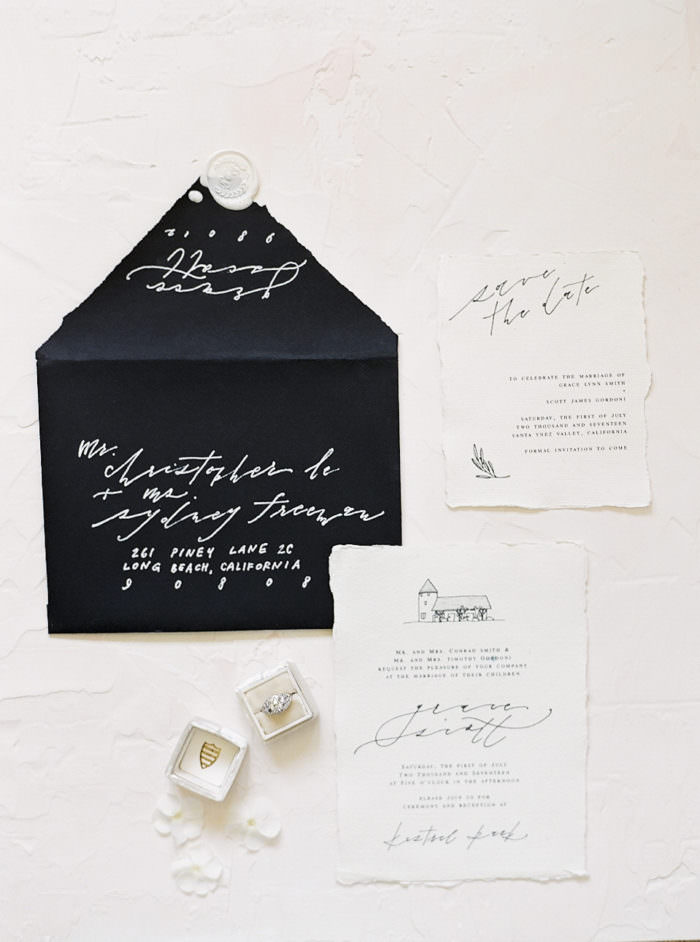 grace
scott
mr.
christopher le
+ ms.
sydney freeman
261 PINEY LANE 2C
LONG BEACH, CALIFORNIA
9 0 8 0 8
save
the date
TO CELEBRATE THE MARRIAGE OF
GRACE LYNN SMITH
+
SCOTT JAMES GORDONI
SATURDAY, THE FIRST OF JULY
TWO THOUSAND AND SEVENTEEN
SANTA YNEZ VALLEY, CALIFORNIA
FORMAL INVITATION TO COME
MR. AND MRS. CONRAD SMITH &
MR. AND MRS. TIMOTHY GORDONI
REQUEST THE PLEASURE OF YOUR COMPANY
AT THE MARRIAGE OF THEIR CHILDREN
grace
scott
SATURDAY, THE FIRST OF JULY
TWO THOUSAND AND SEVENTEEN
AT FIVE O'CLOCK IN THE AFTERNOON
PLEASE JOIN US FOR
CEREMONY AND RECEPTION AT
kestrel park